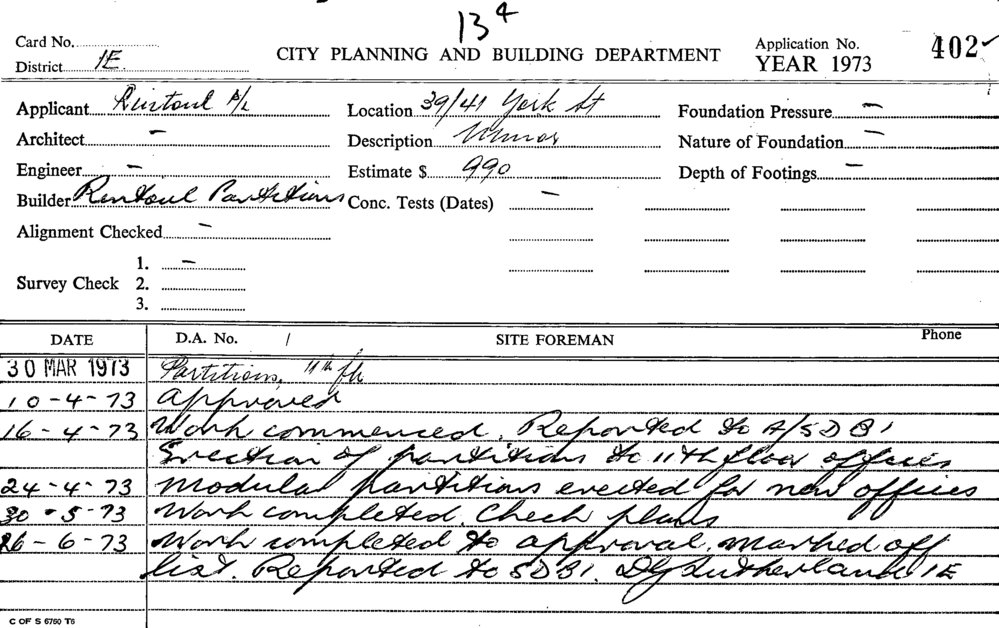 13 4
Card No. CITY PLANNING AND BUILDING DEPARTMENT Application No. 402 ✓
District 1E YEAR 1973
Applicant Rintoul P/L Location 39/41 York St Foundation Pressure —
Architect — Description Minor Nature of Foundation —
Engineer — Estimate $ 990 Depth of Footings —
Builder Rintoul Partitions Conc. Tests (Dates) —
Alignment Checked —
1. —
Survey Check 2.
3.
DATE D.A. No. / SITE FOREMAN Phone
30 MAR 1973 Partitions, 11th flr
10-4-73 Approved
16-4-73 Work commenced. Reported to A/SDBI
Erection of partitions to 11th floor offices
24-4-73 Modular partitions erected for new offices
30-5-73 Work completed. Check plans
26-6-73 Work completed to approval. Marked off
list. Reported to SDBI. DG Sutherland 1E
C OF S 6760 T6